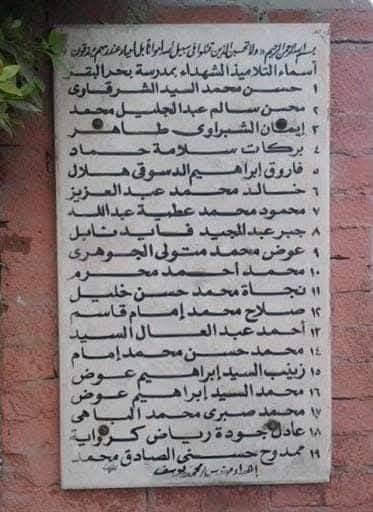 بسم الله الرحمن الرحيم "ولا تحسبن الذين قتلوا في سبيل الله أمواتا بل أحياء عند ربهم يرزقون"
أسماء التلاميذ الشهداء بمدرسة بحر البقر
١ حسن محمد السيد الشرقاوى
٢ محسن سالم عبد الجليل محمد
٣ إيمان الشبراوى طاهر
٤ بركات سلامة حماد
٥ فاروق إبراهيم الدسوقى هلال
٦ خالد محمد عبد العزيز
٧ محمود محمد عطية عبد الله
٨ جبر عبد المجيد فايد نايل
٩ عوض محمد متولى الجوهرى
١٠ محمد أحمد محرم
١١ نجاة محمد حسن خليل
١٢ صلاح محمد إمام قاسم
١٣ أحمد عبد العال السيد
١٤ محمد حسن محمد إمام
١٥ زينب السيد إبراهيم عوض
١٦ محمد السيد إبراهيم عوض
١٧ محمد صبرى محمد الباهى
١٨ عادل جودة رياض كرواية
١٩ ممدوح حسنى الصادق محمد
إهداء محمد يوسف